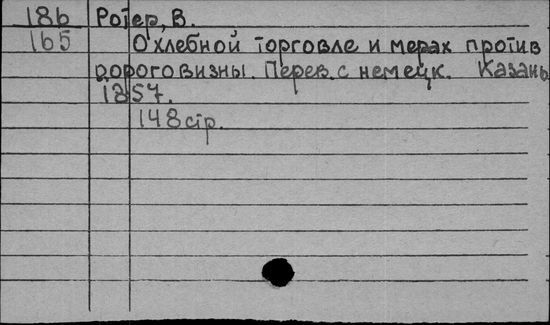 186 Ротер, В.
165 О хлебной торговле и мерах против
дороговизны. Перев. с немецк. Казань
1857.
148 стр.